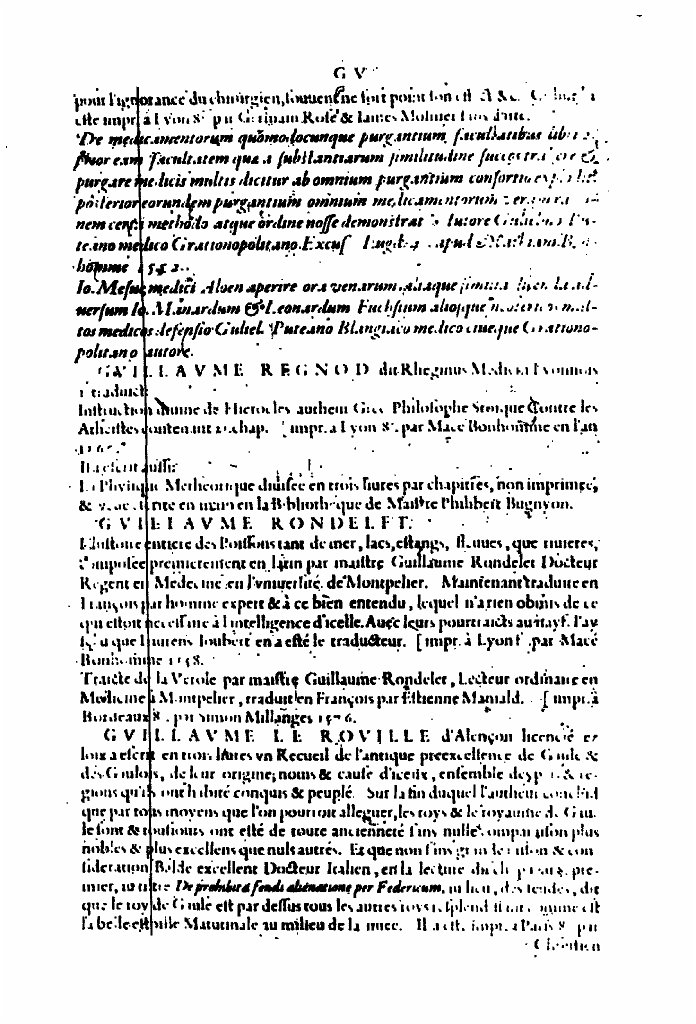 G V
pour l'ignorance du chirurgien, souuent ne soit point son est
este impr. à Lyon 8° par Germain Rose & Iames
De medicamentorum quomodocunque purgantium facultatibus libri
prior eam facultatem qua a substantiarum similitudine
purgare medicis multis dicitur ab omnium purgantium consortio
posterior eorundem purgantium omnium medicamentorum
nem certa methodo atque ordine nosse demonstrat Autore
teano medico Grationopolitano. Excus. Lugd. apud
homme
Io. Mesue medici Aloen aperire ora venarum, aliaque similia
uersum Io. Manardum & Leonardum Fuchsium aliosque
tos medicos defensio Guliel. Puteano Blangiaco medico ciueque Grationo-
politano autore.
GVILLAVME REGNOD dit Rheginus Medecin Lyonnois
a traduict
Instruction diuine de Hierocles autheur Grec Philosophe Stoique Contre les
Atheistes contenant chap. [impr. à Lyon 8°. par Macé Bonhomme en l'an
Il a escrit aussi
La Physique Methcorique diuisée en trois liures par chapitres, non imprimée,
& en main en la Bibliotheque de Maistre Philibert Bugnyon.
GVILLAVME RONDELET.
L'histoire entiere des Poissons tant de mer, lacs, estangs, fleuues, que riuieres,
composée premierement en Latin par maistre Guillaume Rondelet Docteur
Regent en Medecine en l'vniuersité de Montpelier. Maintenant traduite en
François par homme expert & à ce bien entendu, lequel n'a rien obmis de ce
qui estoit necessaire à l'intelligence d'icelle. Auec leurs pourtraicts au
que Laurens Ioubert en a esté le traducteur. [impr. à Lyon f°. par Macé
Bonhomme 1558.
Traicté de la Verole par maistre Guillaume Rondelet, Lecteur ordinaire en
Medicine à Montpelier, traduit en François par Estienne Maniald. [impr. à
Bordeaux 8°. par Simon Millanges 1576.
GVILLAVME LE ROVILLE d'Alençon licencié es
loix a escrit en trois liures vn Recueil de l'antique preexcellence de Gaule &
des Gaulois, de leur origine, noms & cause d'iceux, ensemble des &
gions qu'ils ont habité conquis & peuplé. Sur la fin duquel l'autheur
que par tous moyens que l'on pourroit alleguer, les roys & le royaume de
le sont & tousiours ont esté de toute ancienneté sans nulle comparaison plus
nobles & plus excellens que nuls autres. Et que non sans grande raison & con
sideration Balde excellent Docteur Italien, en la lecture du pre-
mier, au tiltre De prohibita feudi alienatione per Federicum, au lieu, des feudes, dit
que le roy de Gaule est par dessus tous les autres roys, est
la belle estoille Matutinale au milieu de la nuee. Il a est. impr. à Paris 8° par
Chrestien